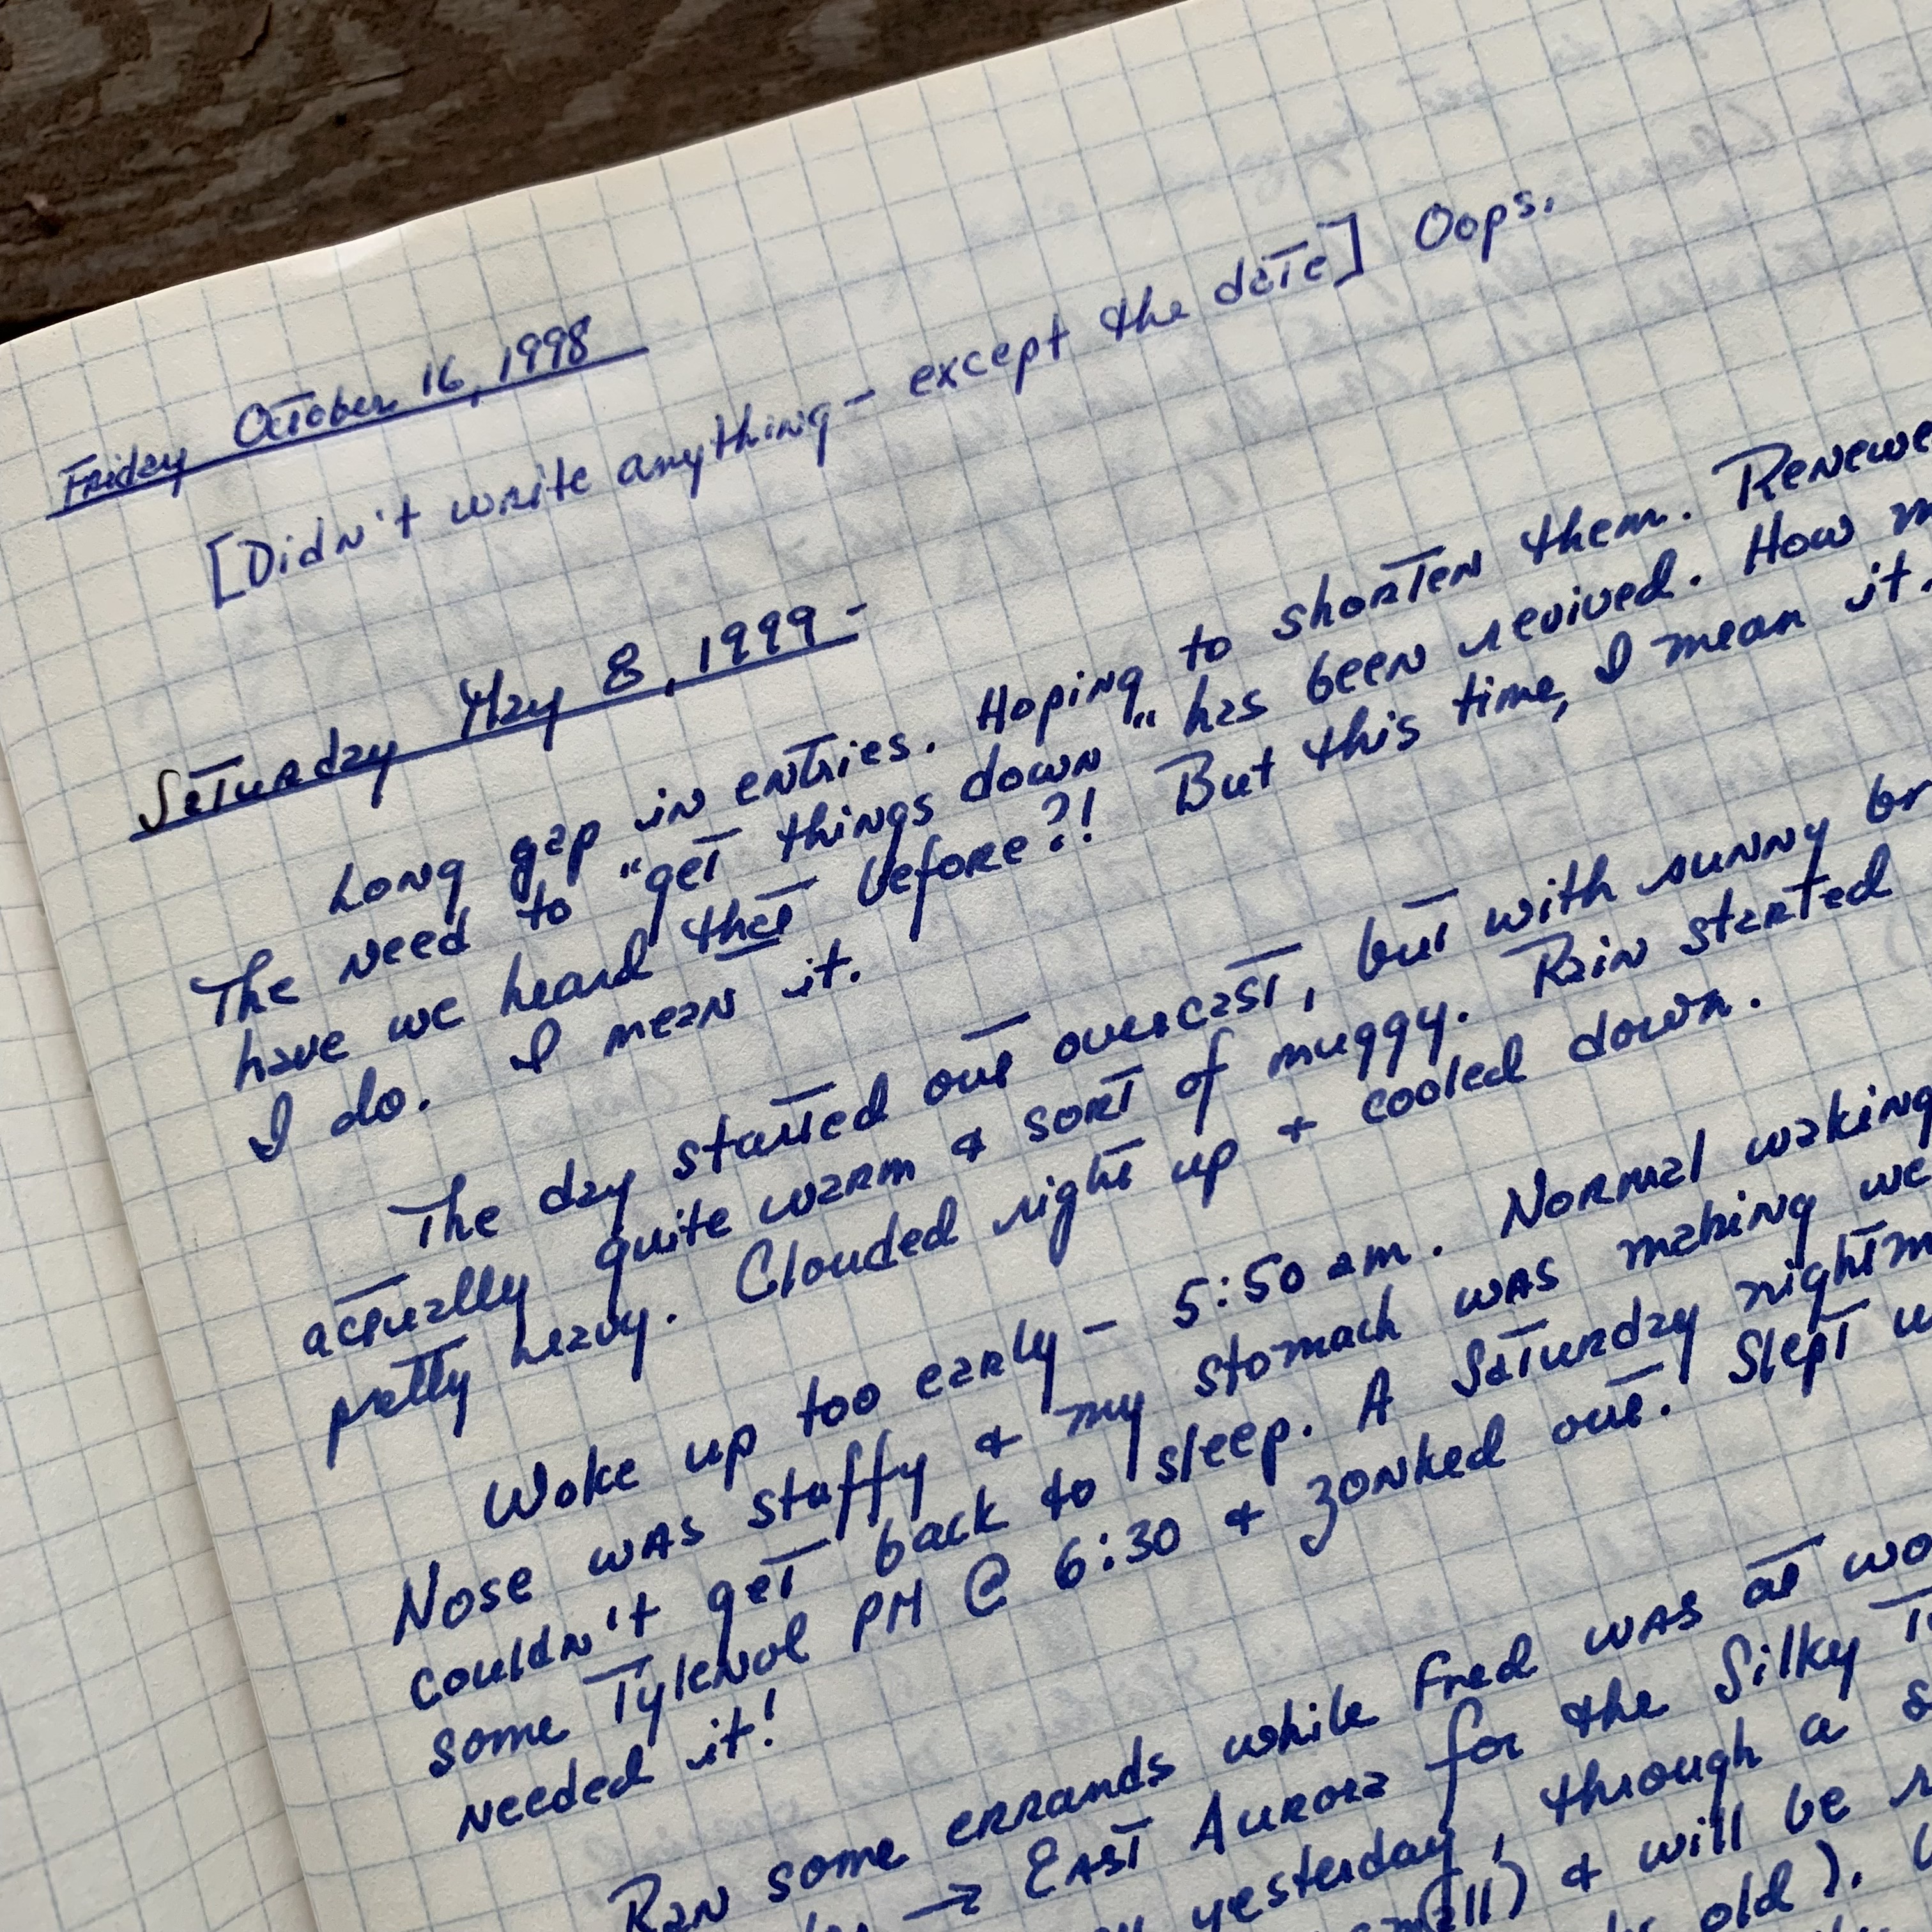 Friday October 16, 1998
[Didn't write anything - except the date] Oops.
Saturday May 8, 1999 -
Long gap in entries. Hoping to shorten them. Renewe
The need to "get things down" has been revived. How m
have we heard that before?! But this time, I mean it.
I do. I mean it.
The day started out overcast, but with sunny br
actually quite warm & sort of muggy. Rain started
pretty heavy. Clouded right up + cooled down.
Woke up too early - 5:50 am. Normal waking
Nose was stuffy & my stomach was making we
couldn't get back to sleep. A Saturday nightm
some Tylenol PM @ 6:30 & zonked out. Slept u
needed it!
Ran some errands while Fred was at wo
→ East Aurora for the Silky T
yesterday, through a s
& will be r
old).